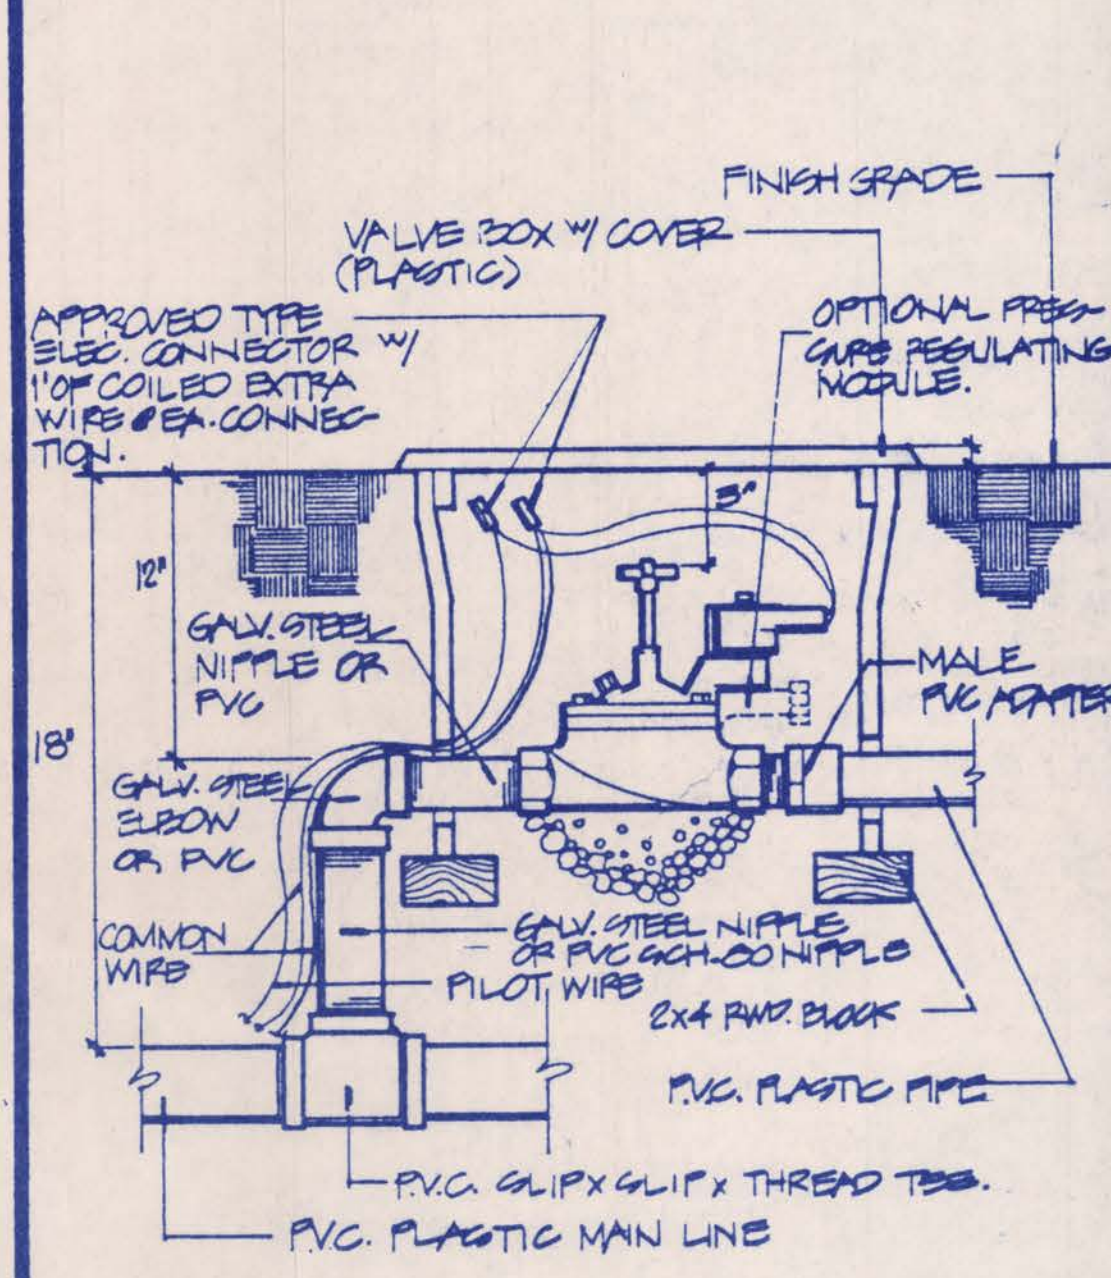 FINISH GRADE
VALVE BOX W/ COVER
(PLASTIC)
APPROVED TYPE
ELEC. CONNECTOR W/
1' OF COILED EXTRA
WIRE @ EA. CONNEC-
TION.
OPTIONAL PRES-
SURE REGULATING
MODULE.
3"
12"
GALV. STEEL
NIPPLE OR
PVC
MALE
PVC ADAPTER
18"
GALV. STEEL
ELBOW
OR PVC
COMMON
WIRE
GALV. STEEL NIPPLE
OR PVC SCH-80 NIPPLE
PILOT WIRE
2x4 RWD. BLOCK
P.V.C. PLASTIC PIPE
P.V.C. SLIP x SLIP x THREAD TEE.
P.V.C. PLASTIC MAIN LINE